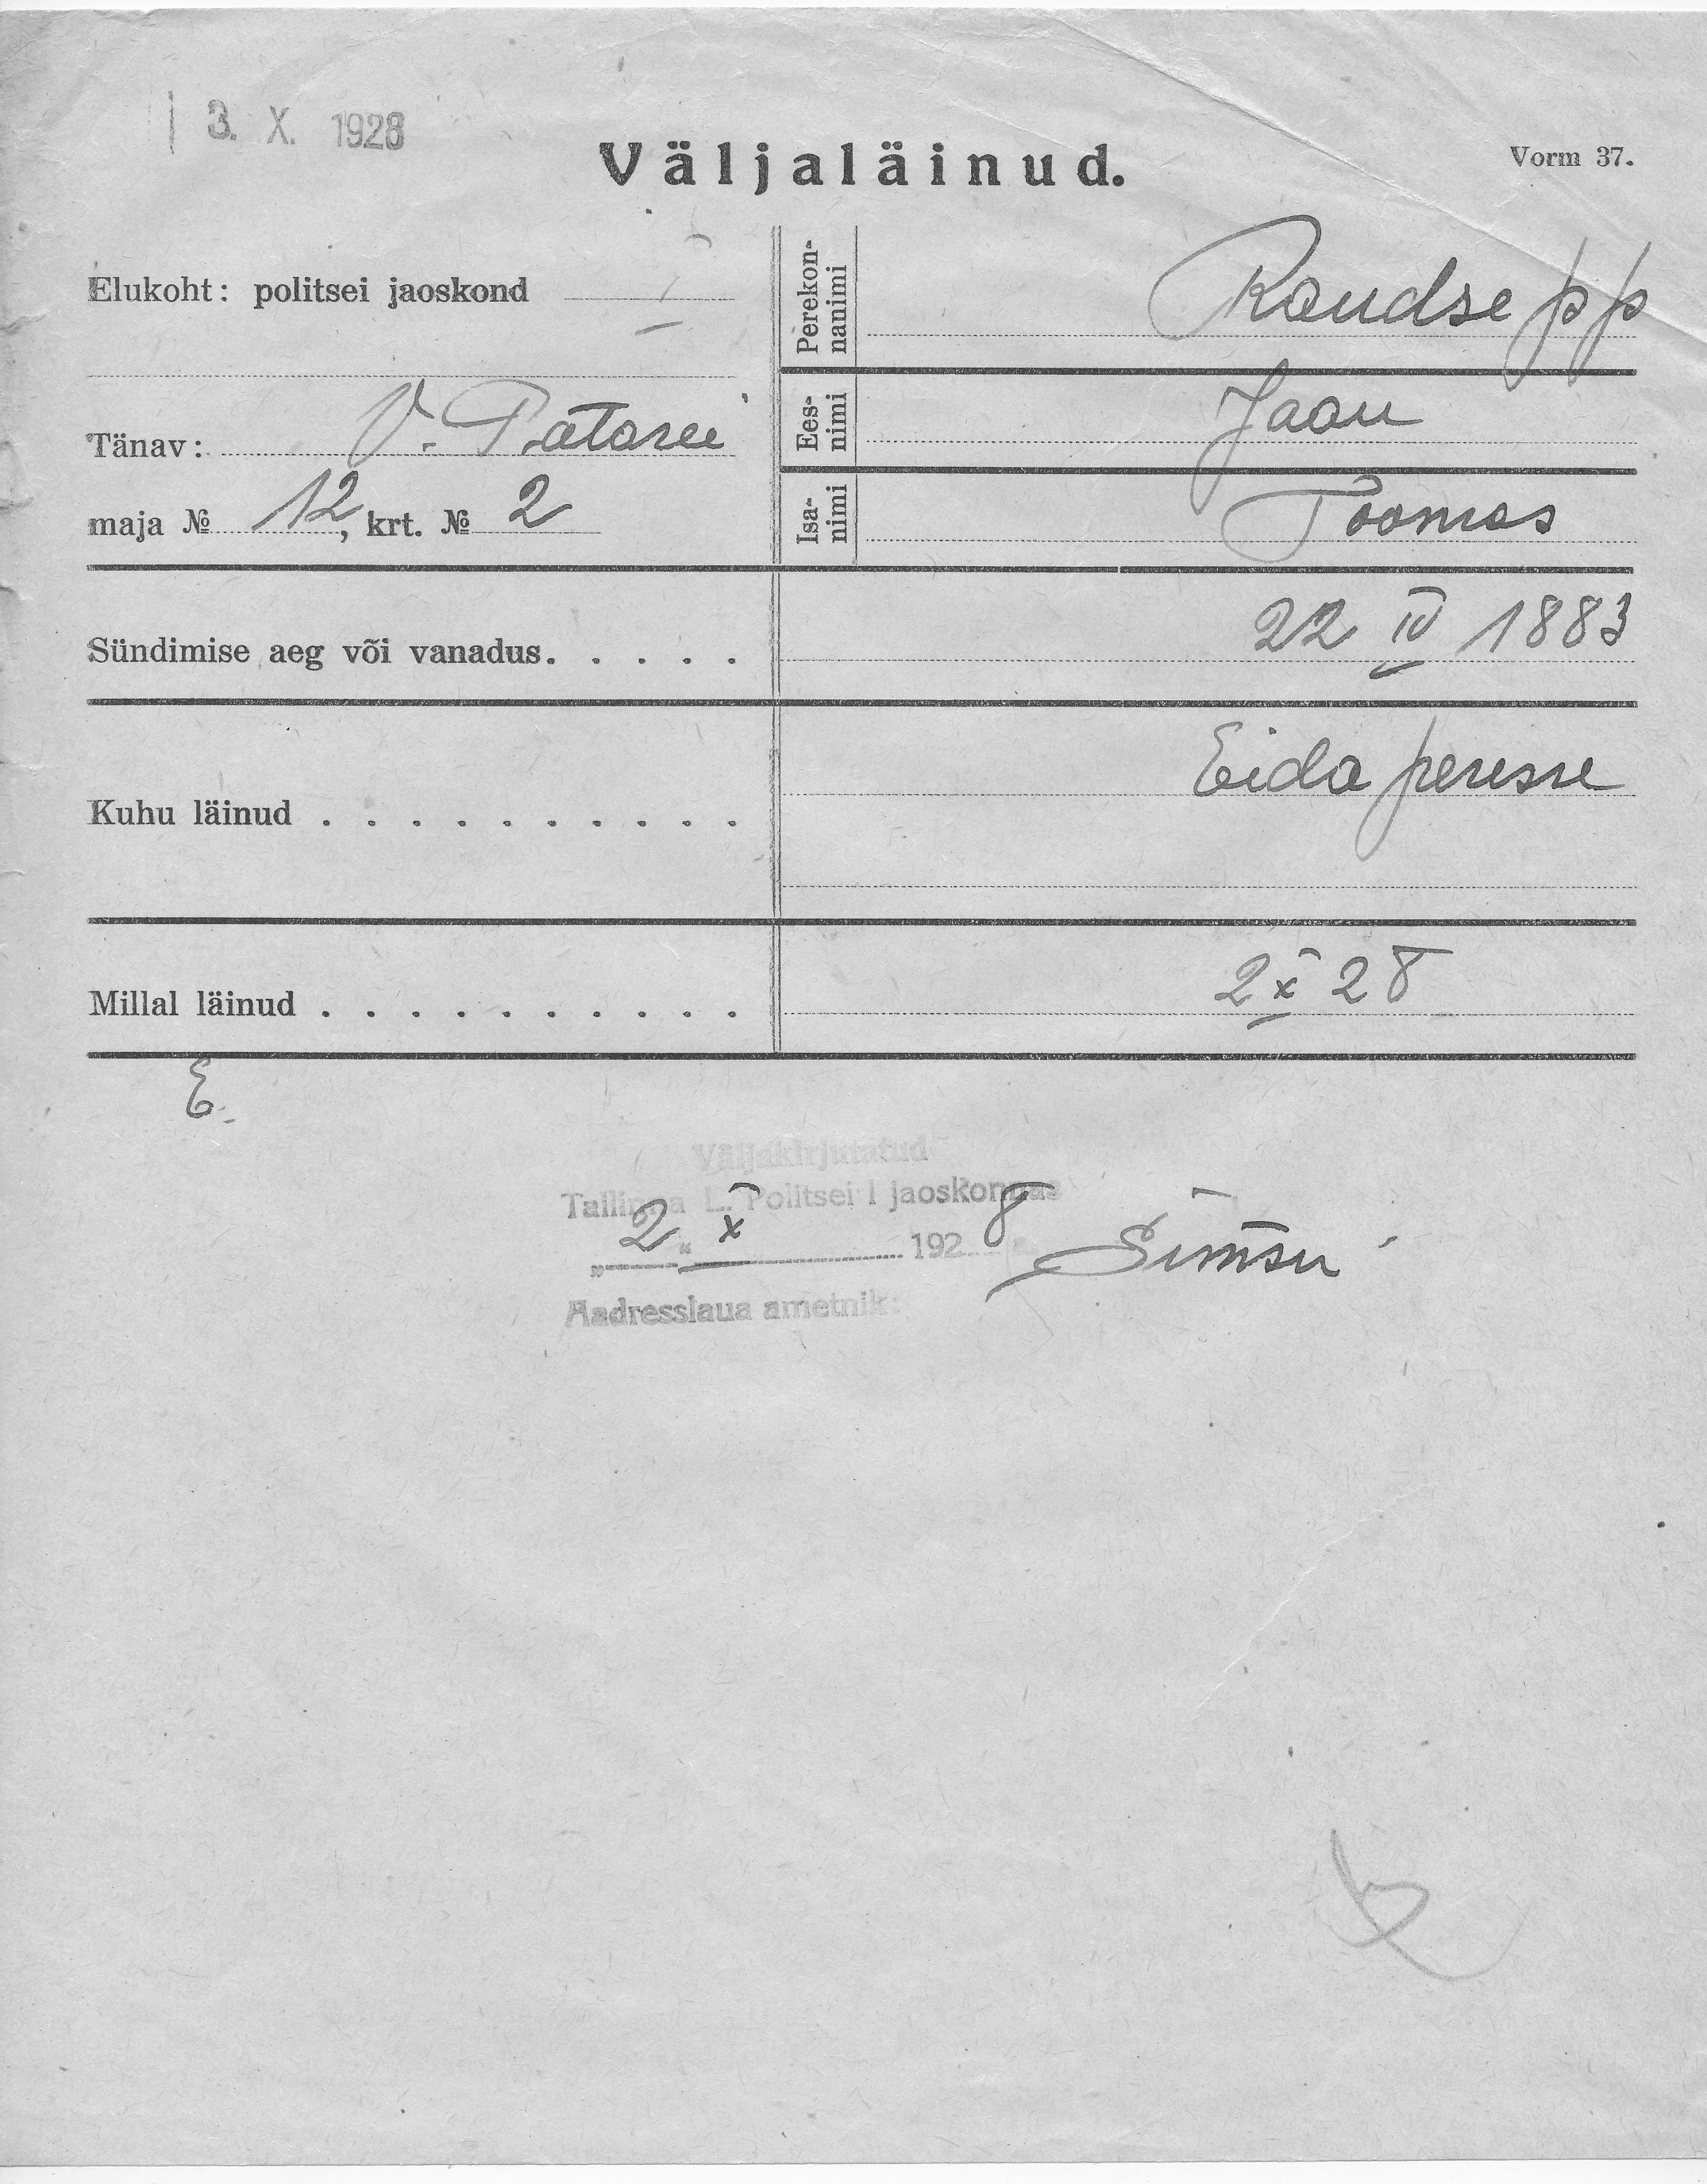 3. X. 1928
Väljaläinud.
Vorm 37.
Elukoht: politsei jaoskond I
Tänav: V. Patarei
maja № 12, krt. № 2
Perekon-
nanimi
Raudsepp
Ees-
nimi
Jaan
Isa-
nimi
Toomas
Sündimise aeg või vanadus. . . . . 22 IV 1883
Kuhu läinud . . . . . . . . . . Eidaperesse
Millal läinud . . . . . . . . . . 2 X 28
E.
Väljakirjutatud
Tallinna L. Politsei I jaoskonnas
„2“ X 1928
Aadresslaua ametnik: